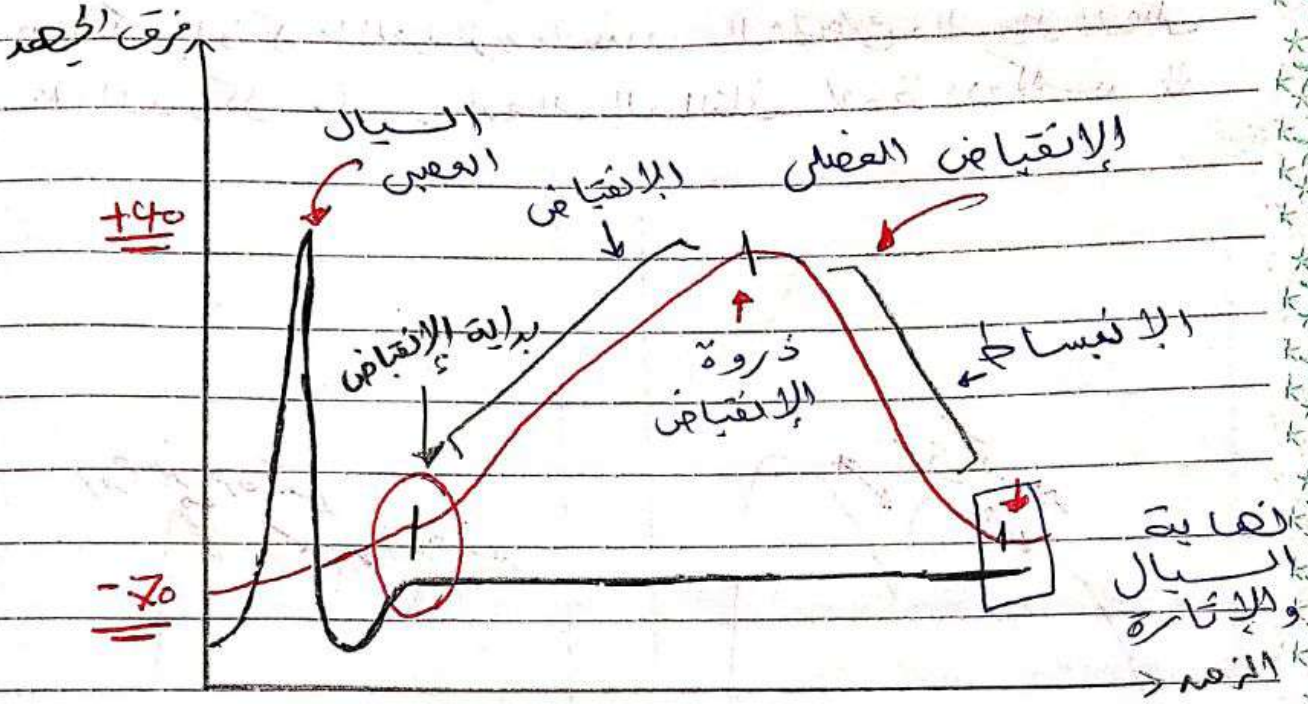 فرق الجهد
السيال
العصبى
الإنقباض
الإنقباض العضلى
+40
بداية الإنقباض
ذروة
الإنقباض
الانبساط
-70
نهاية
السيال
والإثارة
الزمن